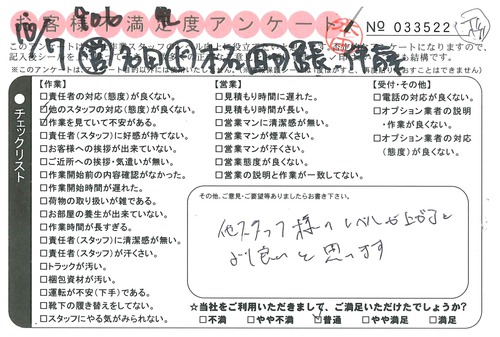 お客様不満足度アンケート
№ 033522
【作業】
□責任者の対応(態度)が良くない。
□他のスタッフの対応(態度)が良くない。
□作業を見ていて不安がある。
□責任者(スタッフ)に好感が持てない。
□お客様への挨拶が出来ていない。
□ご近所への挨拶・気遣いが無い。
□作業開始前の内容確認がなかった。
□作業開始時間が遅れた。
□荷物の取り扱いが雑である。
□お部屋の養生が出来ていない。
□作業時間が長すぎる。
□責任者(スタッフ)に清潔感が無い。
□責任者(スタッフ)が汗くさい。
□トラックが汚い。
□梱包資材が汚い。
□運転が不安(下手)である。
□靴下の履き替えをしてない。
□スタッフにやる気がみられない。
【営業】
□見積もり時間に遅れた。
□見積もり時間が長い。
□営業マンに清潔感が無い。
□営業マンが煙草くさい。
□営業マンが汗くさい。
□営業態度が良くない。
□営業の説明と作業が一致してない。
【受付・その他】
□電話の対応が良くない。
□オプション業者の説明
・作業が良くない。
□オプション業者の対応
(態度)が良くない。
チェックリスト
その他、ご意見・ご要望等ありましたらお書き下さい。
他スタッフ様のレベルが上がると
より良いと思います
☆当社をご利用いただきまして、ご満足いただけたでしょうか?
□不満 □やや不満 □普通 □やや満足 □満足